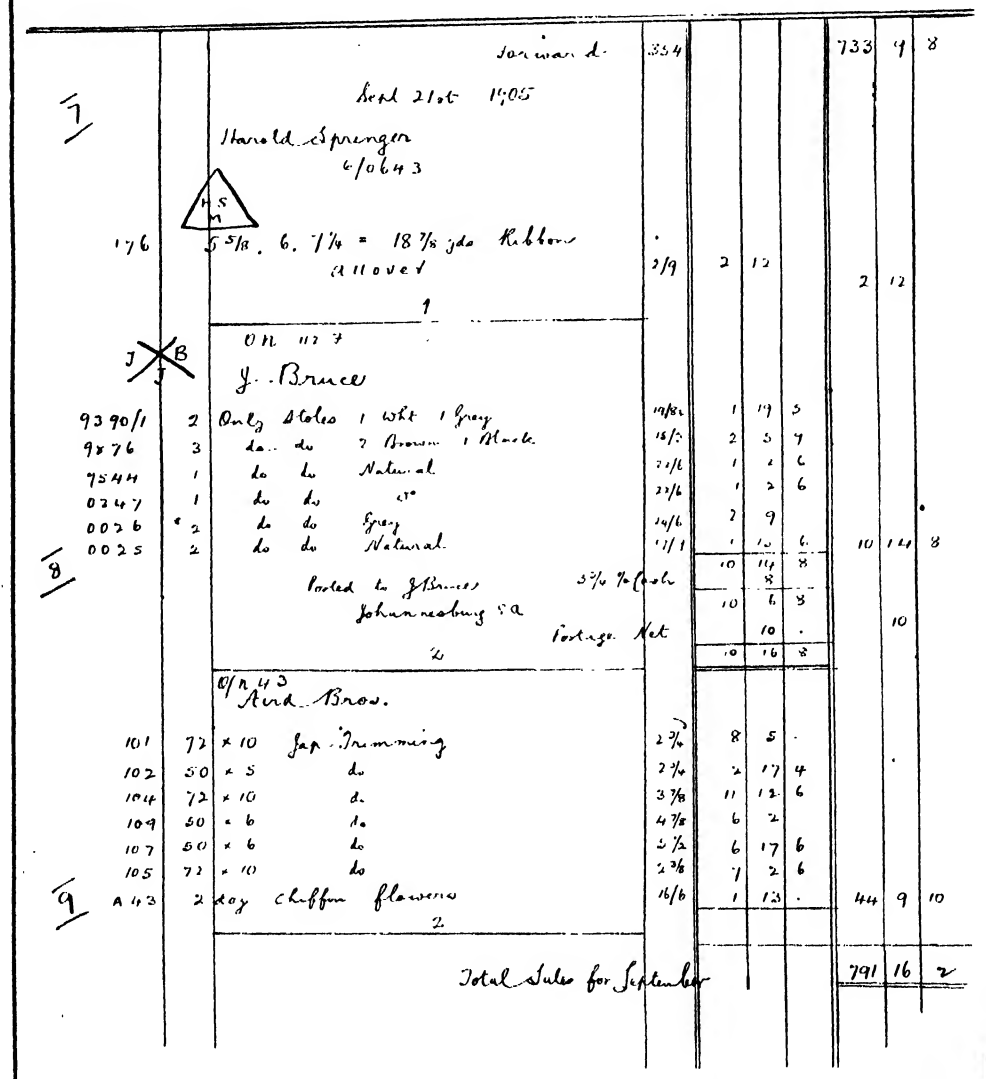 forward 354 733 9 8
7
Sept 21st 1905
Harold Sprenger
6/0643
H S
M
176 5 5/8. 6. 7 1/4 = 18 7/8 yds Ribbon
allover 2/9 2 12 2 12
1
O/N 1127
J B
J
J. Bruce
9390/1 2 Only Stoles 1 Wht 1 Grey 1 19 5
9876 3 do do 2 Brown 1 Black 2
7544 1 do do Natural 22/6 1 2 6
0347 1 do do do 22/6 1 2 6
0026 2 do do Grey 24/6 2 9
0025 2 do do Natural 1 6 10 14 8
8
10 14 8
Posted to J Bruce 3 3/4 % Cash 8
Johannesburg SA 10 6 8
Postage Net 10 . 10
2 10 16 8
O/N 43
Aird Bros.
101 72 x 10 Jap Trimming 2 3/4 8 5 .
102 50 x 5 do 2 3/4 2 17 4
104 72 x 10 do 3 7/8 11 12 6
109 50 x 6 do 4 7/8 6 2
107 50 x 6 do 5 1/2 6 17 6
105 72 x 10 do 2 3/8 7 2 6
9 A43 2 doz chiffon flowers 16/6 1 13 . 44 9 10
2
Total Sales for September 791 16 2